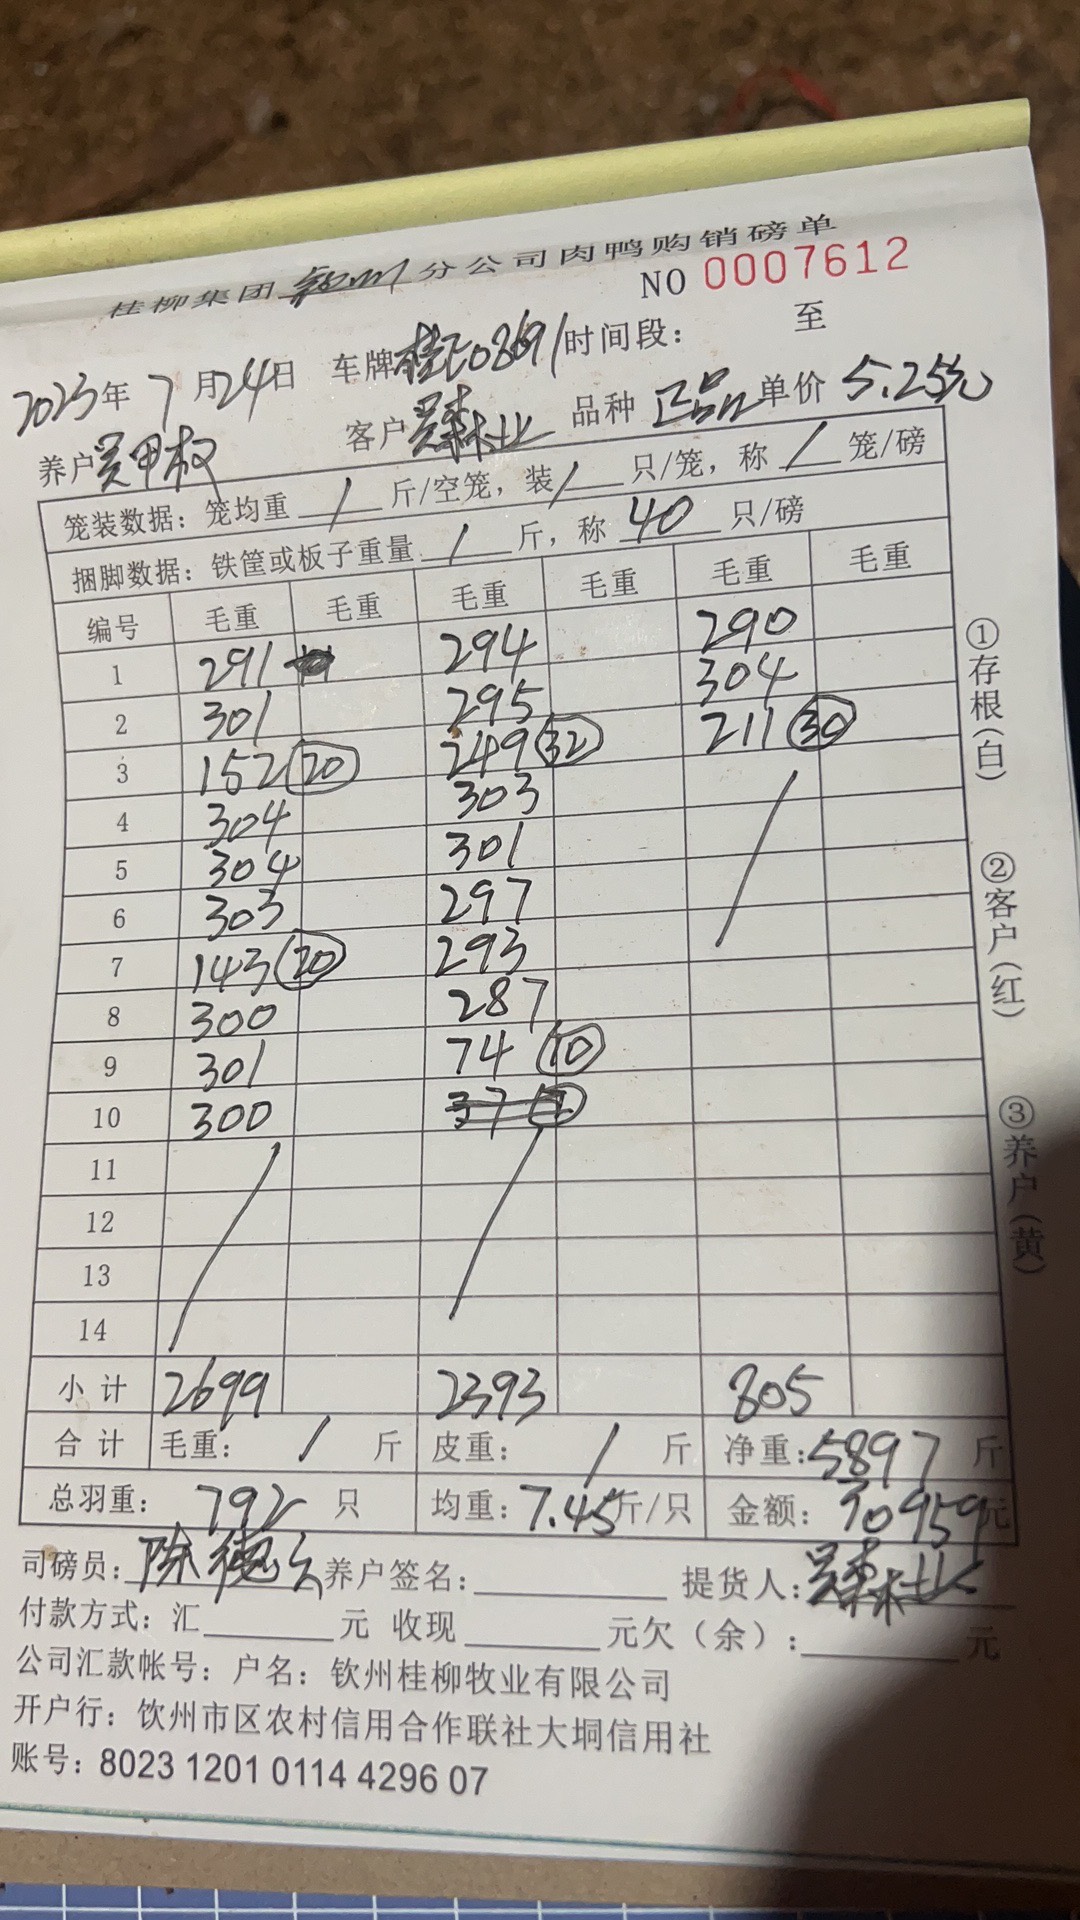 桂柳集团钦州分公司肉鸭购销磅单
NO 0007612
2023年 7月24日 车牌桂E08691时间段: 至
养户吴甲权 客户吴森林业 品种 正品 单价 5.25元
笼装数据: 笼均重 / 斤/空笼, 装 / 只/笼, 称 / 笼/磅
捆脚数据: 铁筐或板子重量 / 斤, 称 40 只/磅
编号 毛重 毛重 毛重 毛重 毛重 毛重
1 291 294 290
2 301 295 304
3 152 20 249 32 211 30
4 304 303
5 304 301
6 303 297
7 143 20 293
8 300 287
9 301 74 10
10 300
11
12
13
14
小计 2699 2393 805
合计 毛重: / 斤 皮重: / 斤 净重: 5897 斤
总羽重: 792 只 均重: 7.45斤/只 金额: 30959元
司磅员: 陈德 养户签名: 提货人:
付款方式: 汇 元 收现 元欠(余): 元
公司汇款帐号: 户名: 钦州桂柳牧业有限公司
开户行: 饮州市区农村信用合作联社大垌信用社
账号: 8023 1201 0114 4296 07
①存根(白) ②客户(红) ③养户(黄)